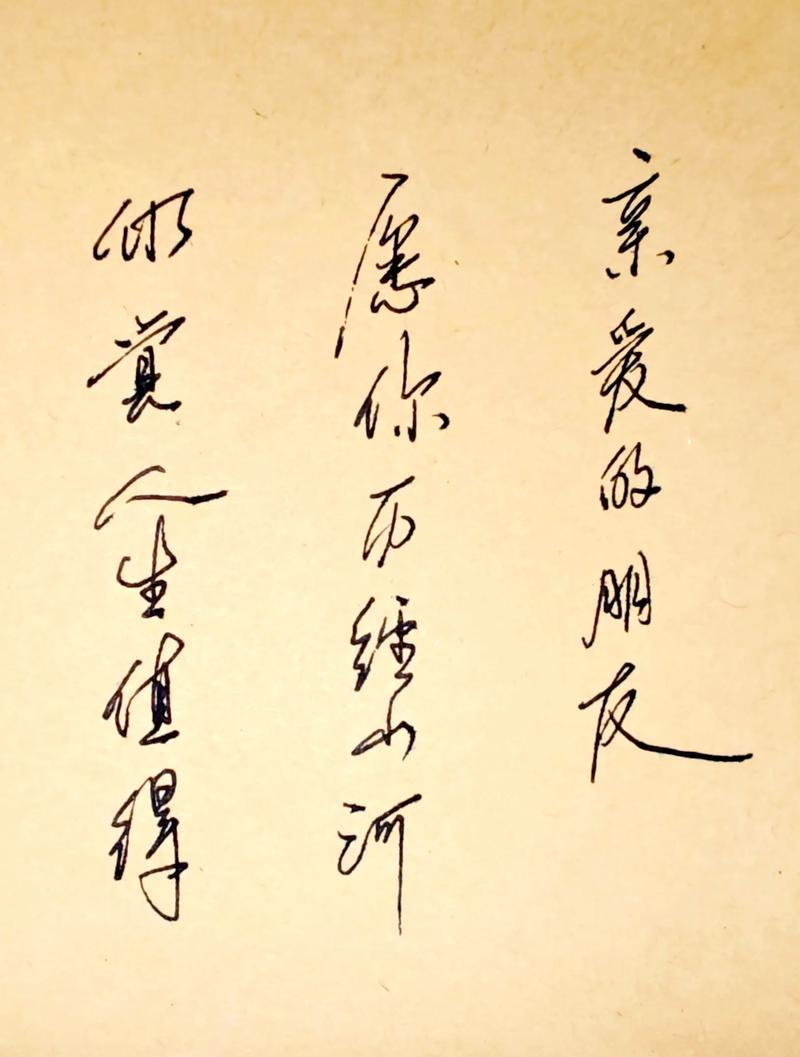 亲爱的朋友
愿你历经山河
仍觉人生值得